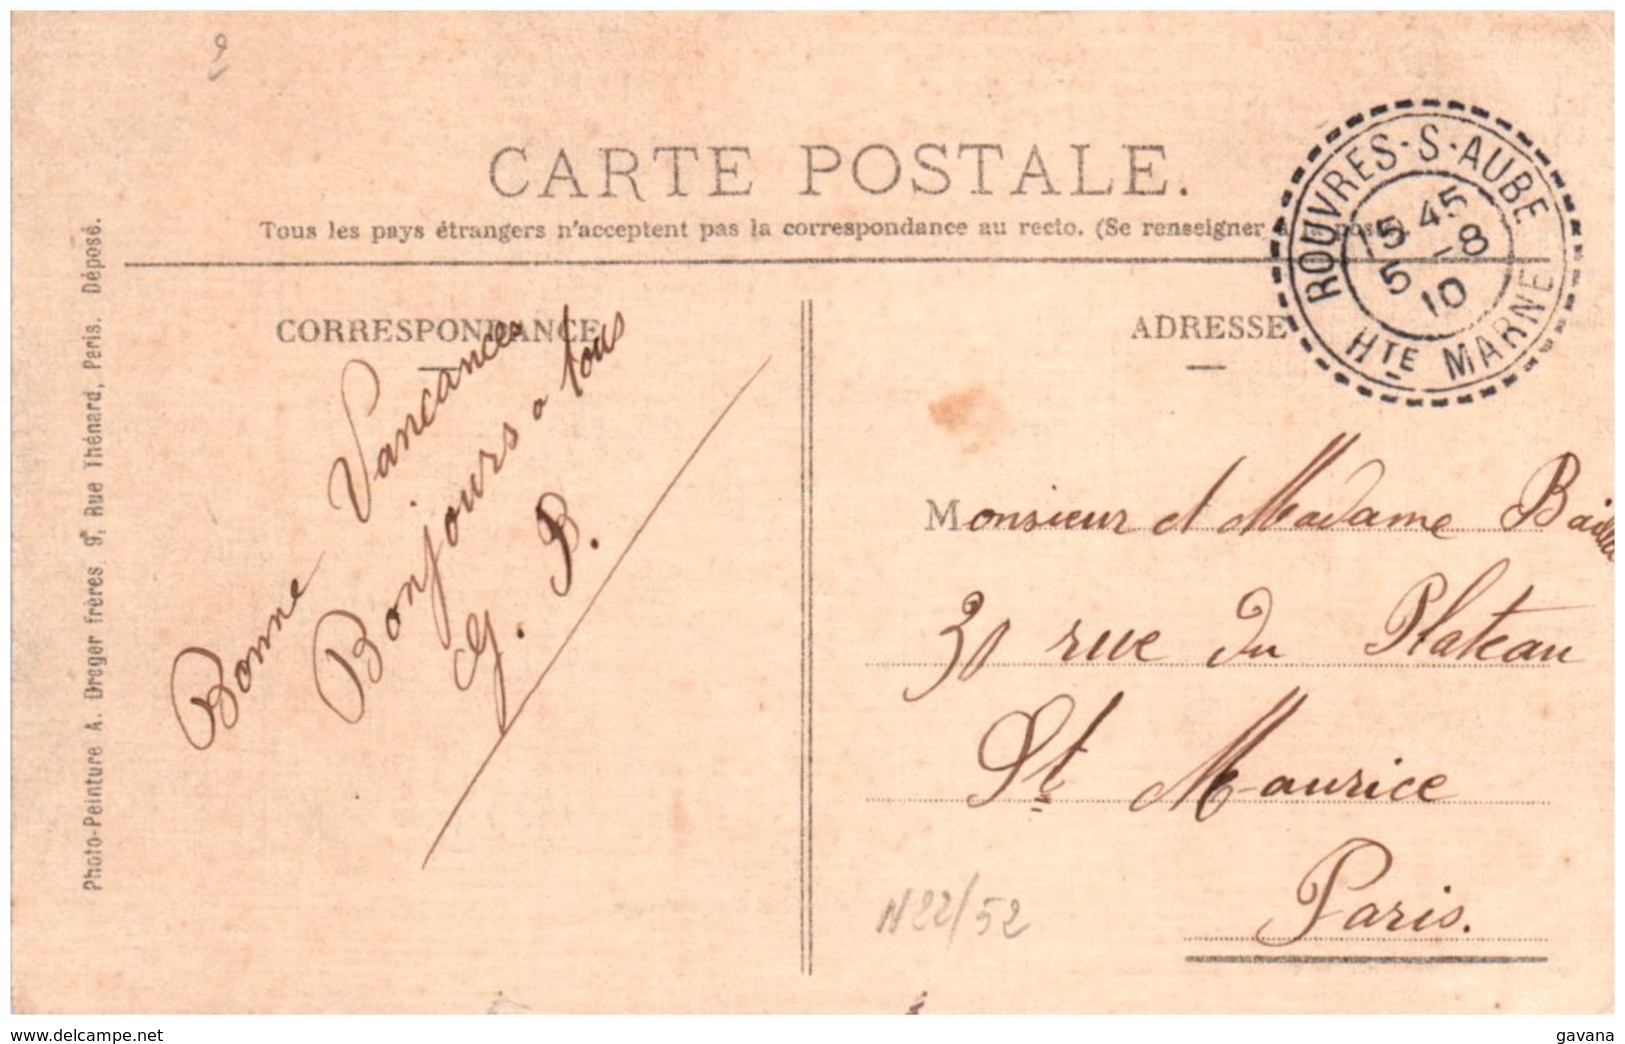 CARTE POSTALE.
Tous les pays étrangers n'acceptent pas la correspondance au recto. (Se renseigner
ROUVRES-S-AUBE
15 45
5 -8
10
HTE MARNE
CORRESPONDANCE
ADRESSE
Bonne Vancances
Bonjours a tous
G. B.
Monsieur et Madame
30 rue du Plateau
St Maurice
Paris.
N22/52
Photo-Peinture A. Dreger frères, 9, Rue Thénard, Paris. Déposé.
www.delcampe.net
gavana